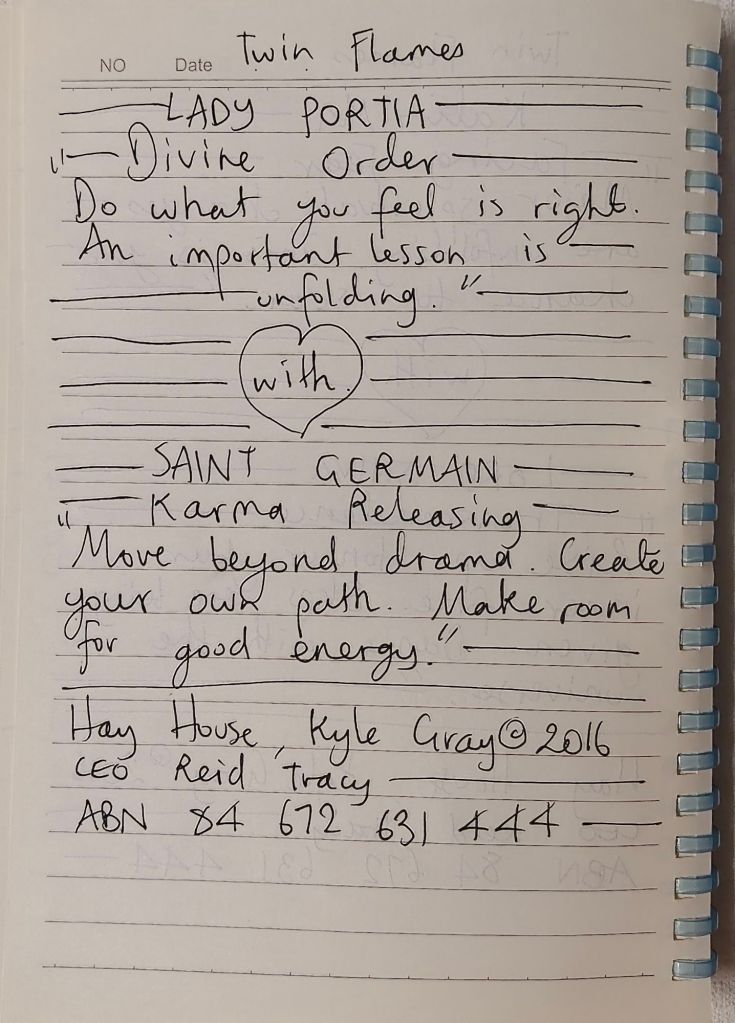 Twin Flames
NO Date
LADY PORTIA
"Divine Order
Do what you feel is right.
An important lesson is
unfolding."
with
SAINT GERMAIN
"Karma Releasing
Move beyond drama. Create
your own path. Make room
for good energy."
Hay House, Kyle Gray © 2016
CEO Reid Tracy
ABN 84 672 631 444